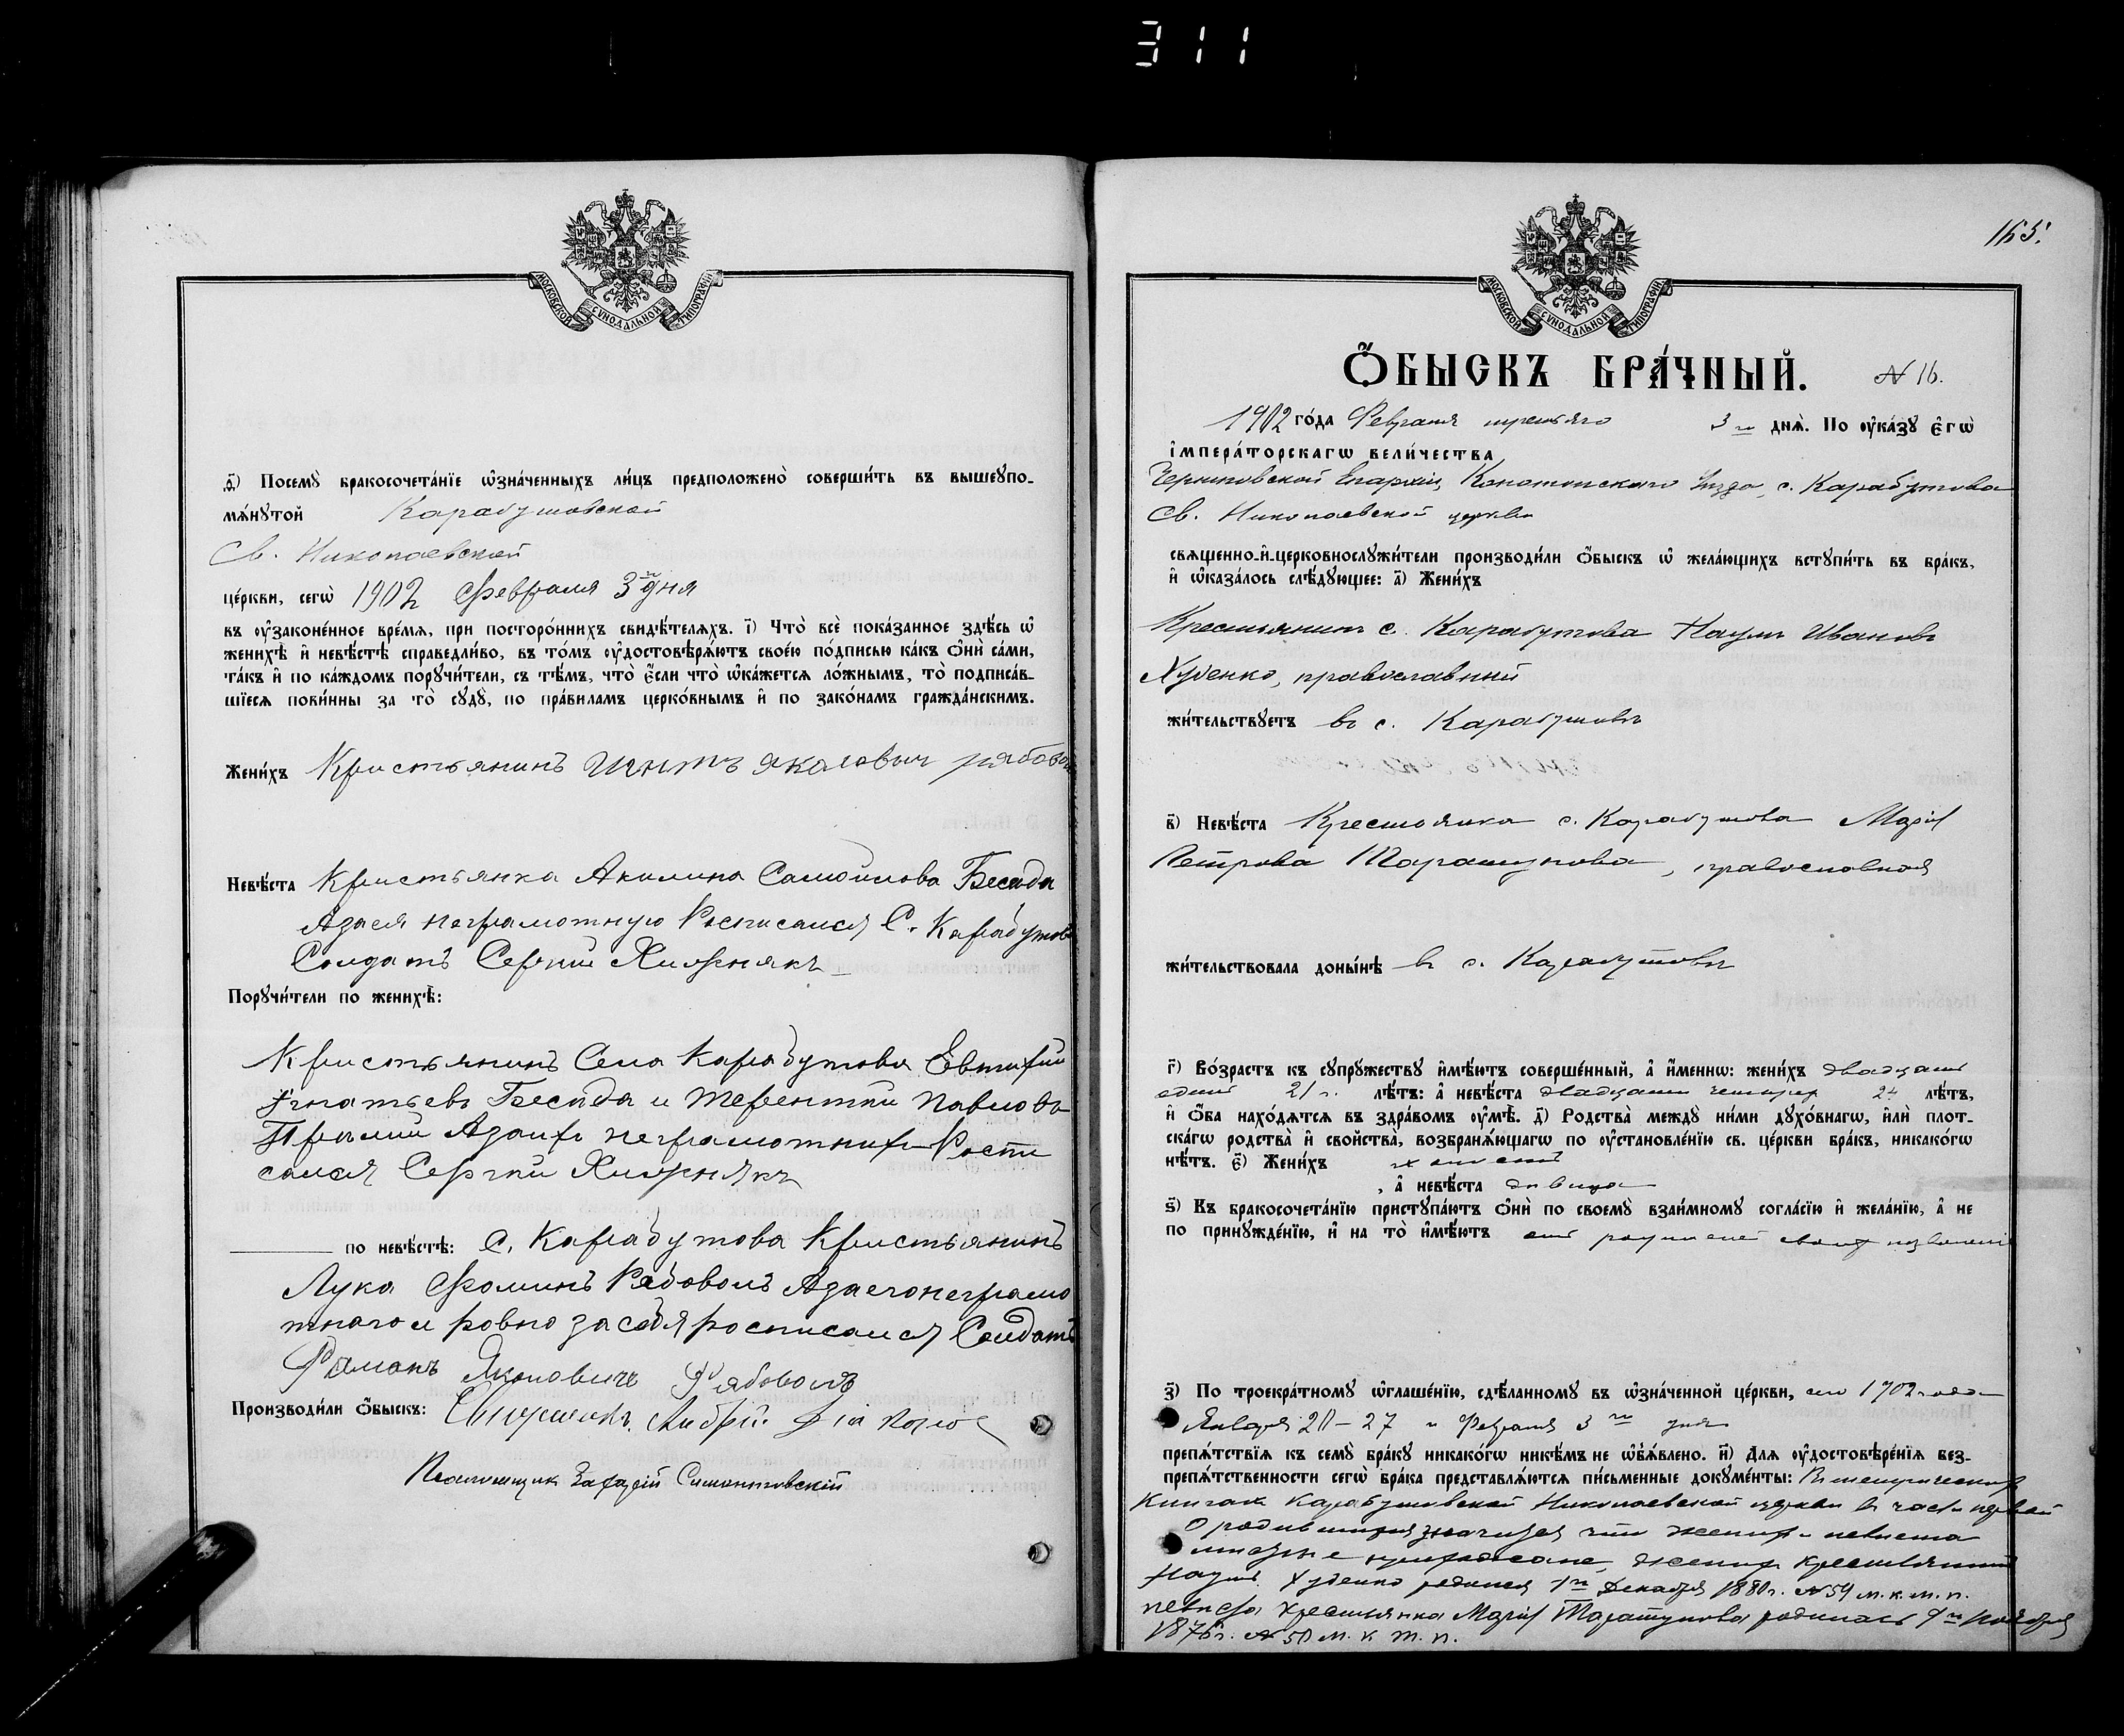 311
МОСКОВСКОЙ СѴНОДАЛЬНОЙ ТИПОГРАФІИ
д҃) Посемꙋ̀ бракосочета́нїе ѡ҆зна́ченныхъ ли́цъ предположено̀ соверши́ть въ вышеꙋпо-
мѧ́нꙋтой Карабутовской
Св. Николаевской
це́ркви, сегѡ̀ 1902 Февраля 3го дня
въ ᲂу҆зако́ненное вре́мѧ, при посторо́ннихъ свидѣ́телѧхъ. і҃) Что̀ всѐ пока́занное здѣ́сь ѡ҆
женихѣ̀ и҆ невѣ́стѣ справедли́во, въ то́мъ ᲂу҆достовѣрѧ́ютъ свое́ю по́дписью ка́къ ѻ҆нѝ са́ми,
та́къ и҆ по ка́ждомъ порꙋчи́тели, съ тѣ́мъ, что̀ є҆́сли что̀ ѡ҆ка́жетсѧ ло́жнымъ, то̀ подписа́в-
шїесѧ пови́нны за то̀ сꙋдꙋ̀, по пра́виламъ церко́внымъ и҆ по зако́намъ гражда́нскимъ.
Жени́хъ Кристьянинъ Игнатъ Яколович рябовол
Невѣ́ста Кристьянка Акилина Самойлова Бесида
Азаея неграмотную Росписался С. Карабутова
Солдатъ Сергий Хижнякъ
Порꙋчи́тели по женихѣ̀:
Кристьянинъ Села Карабутова Евтифий
Игнатьевъ Бесида и Терентий Павловъ
Азаихъ неграмотнихъ Роспи
сался Сергий Хижнякъ
по невѣ́стѣ: С. Карабутова Кристьянинъ
Лука Фоминъ Рябоволъ Азаегонеграмо
тнаго и ровно засебя росписался Солдатъ
Раманъ Якововичъ Рябоволъ
Производи́ли ѻ҆́быскъ: Священникъ Андрей
Псаломщик Симонтовскій
165.
МОСКОВСКОЙ СѴНОДАЛЬНОЙ ТИПОГРАФІИ
Ѻ҆́БЫСКЪ БРА́ЧНЫЙ. № 16.
1902 го́да Февраля третьяго 3го днѧ̀. По ᲂу҆ка́зꙋ є҆гѡ̀
і҆мпера́торскагѡ вели́чества
Черниговской Епархіи, Конотопскаго Уезда, с. Карабутова
Св. Николаевской церкви
свѧщенно-и҆-церковнослꙋжи́тели производи́ли ѻ҆́быскъ ѡ҆ жела́ющихъ встꙋпи́ть въ бра́къ,
и҆ ѡ҆каза́лось слѣ́дꙋющее: а҃) Жени́хъ
Крестьянинъ с. Карабутова Наумъ Ивановъ
Худенко, православный
жи́тельствꙋетъ въ с. Карабутовѣ
в҃) Невѣ́ста Крестьянка с. Карабутова Марія
Петрова Таратунова, православная
жи́тельствовала доны́нѣ въ с. Карабутовѣ
г҃) Во́зрастъ къ сꙋпрꙋ́жествꙋ и҆мѣ́ютъ соверше́нный, а҆ и҆́меннѡ: жени́хъ двадцать
один 21 г. лѣ́тъ: а҆ невѣ́ста двадцати четырех 24 лѣ́тъ,
и҆ ѻ҆́ба нахо́дѧтсѧ въ здра́вомъ ᲂу҆мѣ̀. д҃) Родства̀ междꙋ̀ ни́ми дꙋхо́внагѡ, и҆лѝ плот-
ска́гѡ родства̀ и҆ свойства̀, возбранѧ́ющагѡ по ᲂу҆становле́нїю св. це́ркви бра́къ, никако́гѡ
нѣ́тъ. є҃) Жени́хъ холостъ
, а҆ невѣ́ста девица
ѕ҃) Къ бракосочета́нїю пристꙋпа́ютъ ѻ҆нѝ по своемꙋ̀ взаи́мномꙋ согла́сїю и҆ жела́нїю, а҆ не
по принꙋжде́нїю, и҆ на то̀ и҆мѣ́ютъ отъ родителей своихъ позволеніе
з҃) По троекра́тномꙋ ѡ҆глаше́нїю, сдѣ́ланномꙋ въ ѡ҆зна́ченной це́ркви, 1902 года
Января 20 – 27 и Февраля 3го дня
препѧ́тствїѧ къ семꙋ̀ бра́кꙋ никако́гѡ никѣ́мъ не ѡ҆б̾ѧ́влено. и҃) Для ᲂу҆достовѣре́нїѧ без-
препѧ́тственности сегѡ̀ бра́ка представлѧ́ютсѧ пи́сьменные докꙋме́нты: В метрическихъ
Книгахъ Карабутовской Николаевской церкви въ части первой
О родившихся значится что женихъ и невеста
женихъ крестьянинъ
Наумъ Худенко родился 1го Декабря 1880 г. № 59 м. к. м. п.
невеста Крестьянка Марія Таратунова родилась 1го Ноября
1876 г. № 50 м. к. ж. п.